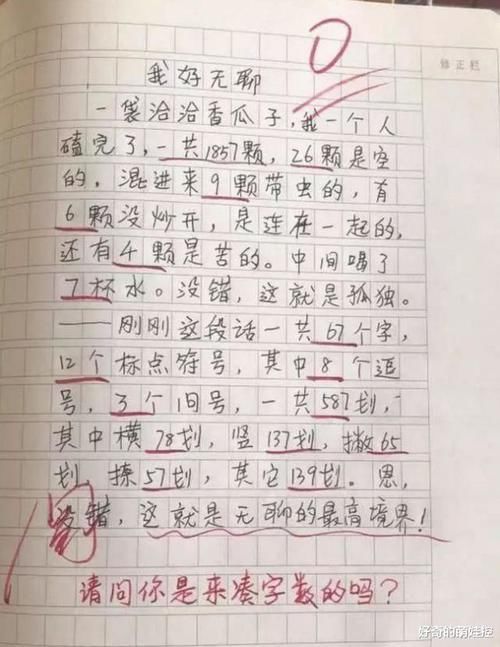 0
修正栏
我好无聊
一袋洽洽香瓜子,我一个人
磕完了,一共1857颗,26颗是空
的,混进来9颗带虫的,有
6颗没炒开,是连在一起的,
还有4颗是苦的。中间喝了
7杯水。没错,这就是孤独。
——刚刚这段话一共67个字,
12个标点符号,其中8个逗
号,3个句号,一共587划,
其中横78划,竖137划,撇65
划,捺57划,其它139划。恩,
没错,这就是无聊的最高境界!
阅
请问你是来凑字数的吗?
好奇的萌娃控